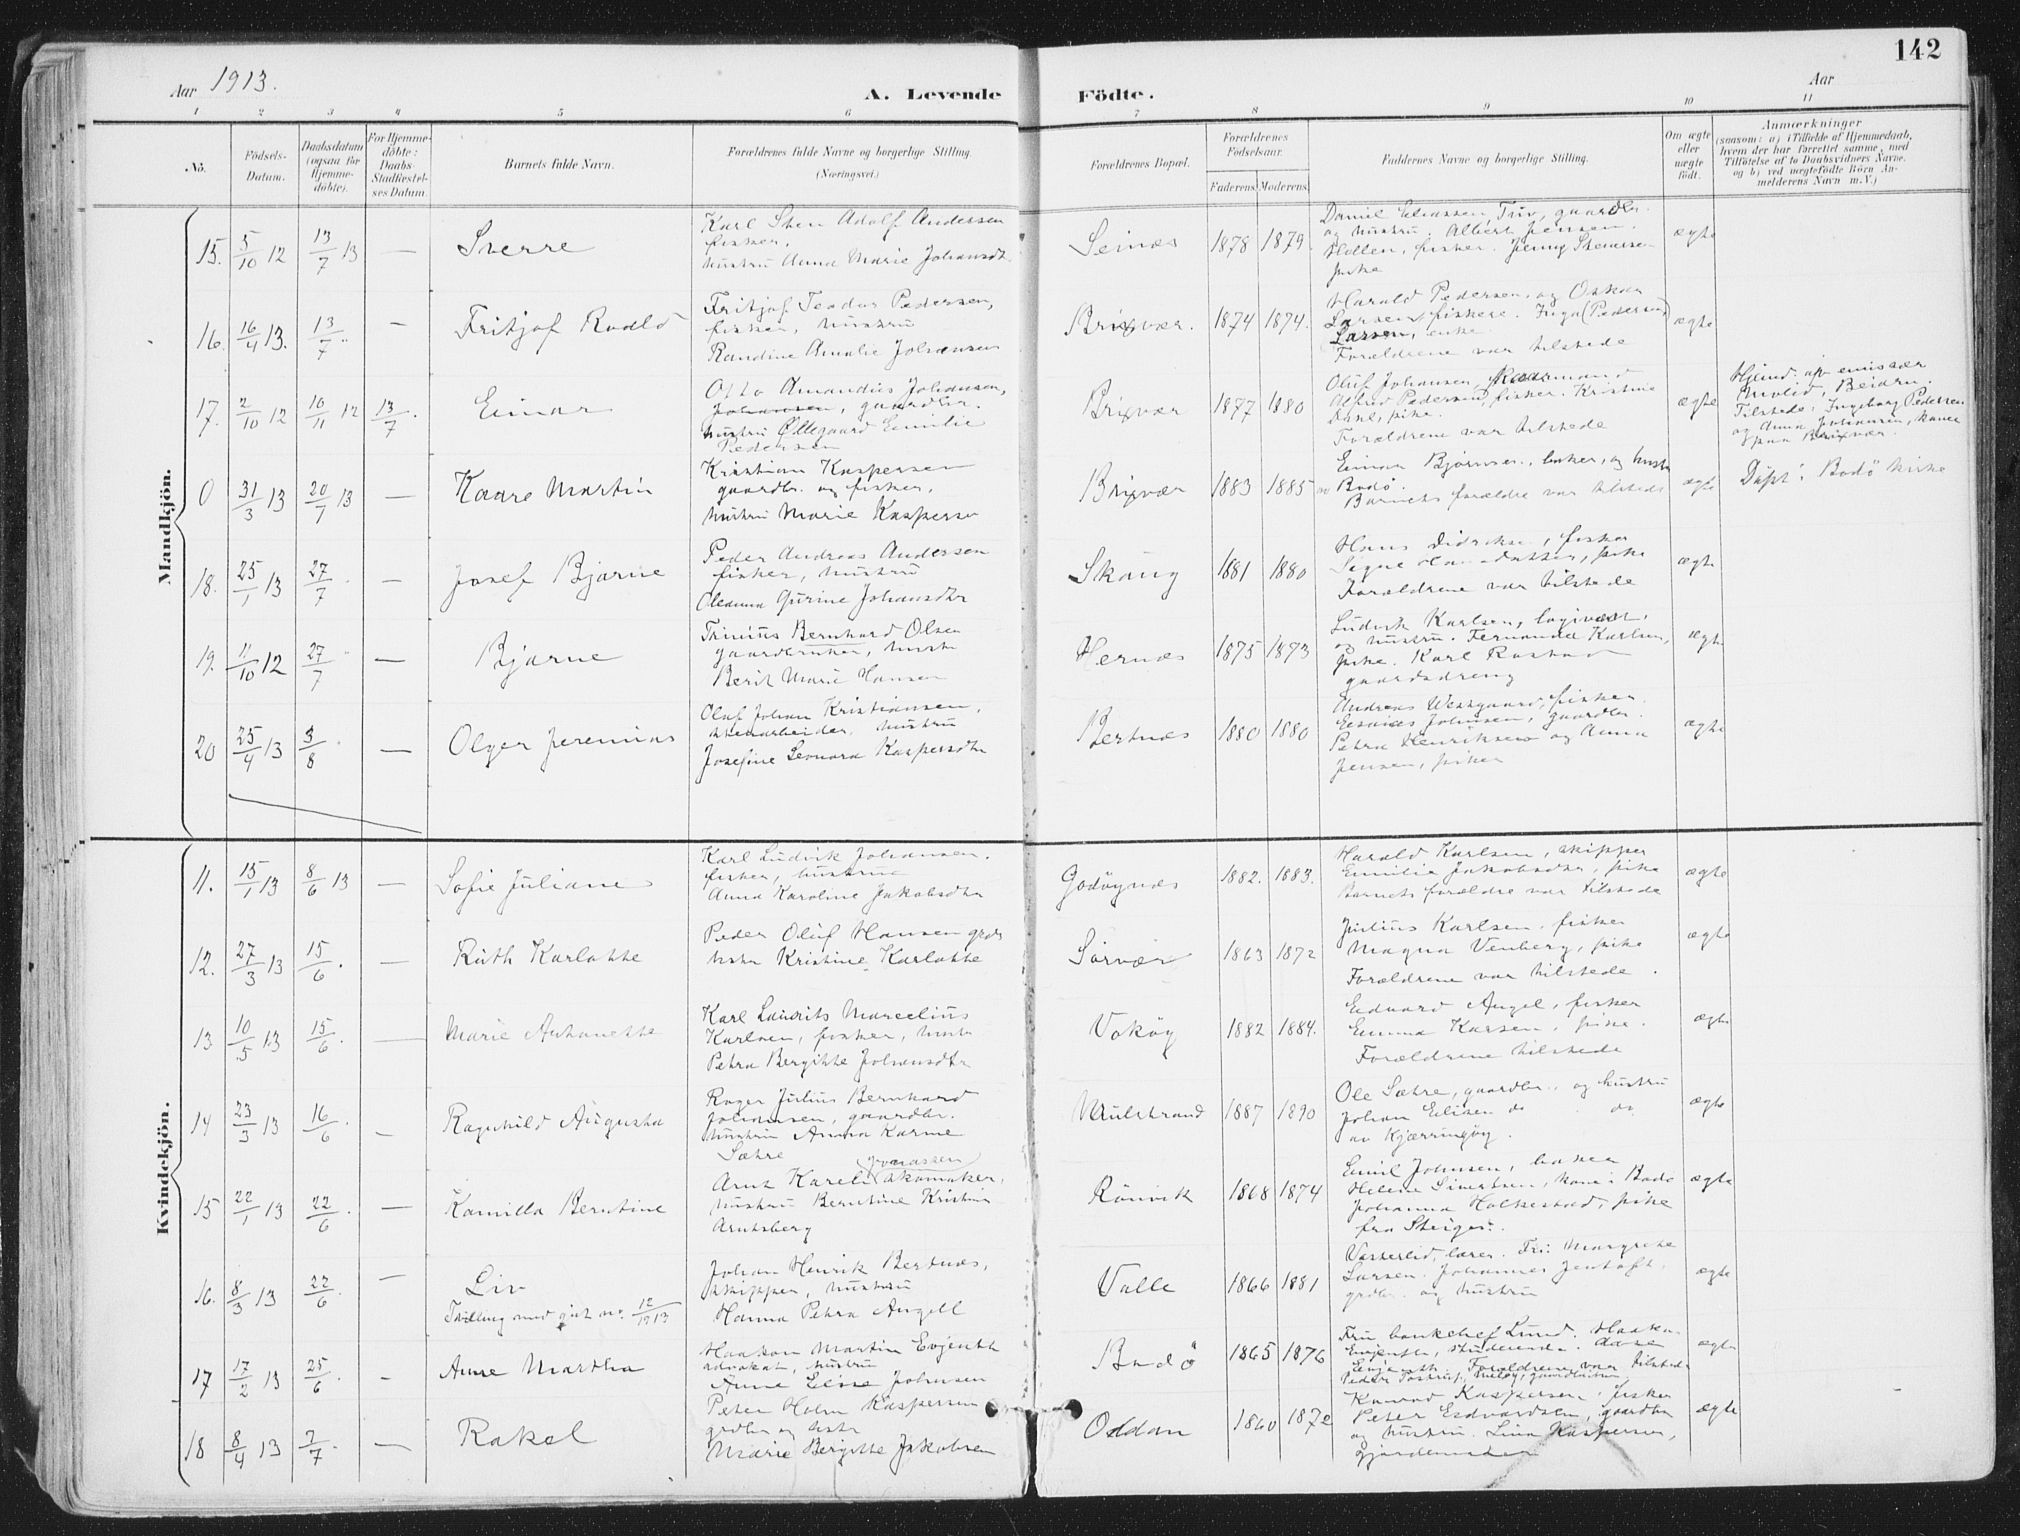 142
Aar 1913.
A. Levende Födte.
Aar
1 2 3 4 5 6 7 8 9 10 11
No.
Födsels-Datum.
Daabsdatum (ogsaa for Hjemmedöbte).
For Hjemmedöbte: Daabs-Stadfæstelses Datum.
Barnets fulde Navn.
Forældrenes fulde Navne og borgerlige Stilling. (Næringsvei.)
Forældrenes Bopæl.
Forældrenes Födselsaar.
Faderens. Moderens.
Faddernes Navne og borgerlige Stilling.
Om ægte eller uægte födt.
Anmærkninger
(saasom: a) i Tilfælde af Hjemmedaab, hvem der har forrettet samme, med Tilföielse af to Daabsvidners Navne. og b) ved uægtefödte Börn Anmelderens Navn m. V.)
Mandkjön.
15. 5/10 12 13/7 13 — Sverre
Karl Sten Adolf Andersen
fisker,
hustru Anna Marie Johansdtr
Seines 1878 1879
Daniel Eliassen, gaardbr.
og hustru. Albert Jensen.
fisker. Jenny
pike
ægte
16. 16/4 13. 13/7 — Fritjof Roald
Fritjof Teodor Pedersen,
fisker, hustru
Randine Amalie Johansen
Brixvær. 1874 1874.
Harald Pedersen og Oskar
Larsen fiskere. Inga (Pedersen)
Larsen, enke
Forældrene var tilstede
ægte
17. 2/10 12 10/11 12 13/7. Einar
Otto Amandus Johansen,
Johansen, gaardbr.
hustru Ollegaard Emilie
Pedersen
Brixvær 1877 1880
Oluf Johansen,
Alfred Pedersen fisker. Kristine
pike.
Forældrene var tilstede
ægte
Hjemd. af emissær
Beiarn.
Tilstede: Ingeborg Pedersen
og Anna Johansen, koner
paa Brixvær.
0 31/3 13 20/7 13 — Kaare Martin
Kristian Kaspersen
gaardbr. og fisker,
hustru Marie Kaspersen
Brixvær 1883 1885
Einar Bjørnsen, baker, og hustru
av Bodø.
Barnets forældre var tilstede
ægte
Døpt i Bodø kirke
18. 25/1 13 27/7 — Josef Bjarne
Peder Andreas Andersen
fisker, hustru
Oleanna Gurine Johansdtr
Skaug 1881 1880
Hans Didriksen, fisker
Signe Hansdatter, pike
Forældrene var tilstede
ægte
19. 11/10 12 27/7 — Bjarne
Trinius Bernhard Olsen
gaardbruker, hustru
Berit Marie Hansen
Hernes 1875 1873
Ludvik Karlsen, logivært,
og hustru. Fernanda Karlsen,
pike. Karl Rastad
gaardsdreng
ægte
20 25/4 13 3/8 — Olger Jeremias
Olaf Johan Kristiansen,
stenarbeider, hustru
Josefine Leonara Kaspersdtr
Bertnes 1880 1880
Andreas Westgaard, fisker.
Johnsen, gaardbr.
Petra Henriksen og Anna
Jensen, piker
ægte
Kvindekjön.
11. 15/1 13 8/6 13 — Sofie Juliane
Karl Ludvik Johansen,
fisker, hustru
Anna Karoline Jakobsdtr
Godøynes 1882. 1883.
Harald Karlsen, skipper
Emilie Jakobsdtr, pike
Barnets forældre var tilstede
ægte
12. 27/3 13 15/6. — Ruth Karlotte
Peder Oluf Hansen grdbr
hustru Kristine Karlotte
Sørvær 1863 1872
Julius Karlsen, fisker
Magna Venberg, pike
Forældrene var tilstede.
ægte
13 10/5 13 15/6. — Marie Antonette
Karl Laurits Marcelius
Karlsen, fisker, hustru
Petra Bergitte Johansdtr
Vokøy 1882 1884.
Edvard Angel, fisker
Emma Karsen, pike.
Forældrene tilstede
ægte
14 23/3 13 16/6. — Ragnhild Augusta
Roger Julius Bernhard
Johansen, gaardbr.
hustru Anna Karine
Sætre
Mulstrand 1887 1890
Ole Sætre, gaardbr. og hustru
Johan Ellisen do do
av Kjærringøy.
ægte
15 22/1 13 22/6. — Kamilla Berntine
Arnt Karel (Jonassen) skomaker,
hustru Berntine Kristine
Arntsberg
Rønvik 1868 1874
Emil Johnsen, baker
Helene Sivertsen, kone i Bodø
Johanna Holkestad, pike
fra Steigen.
ægte
16. 8/3 13 22/6. — Liv
Tvilling med gut no. 12/1913
Johan Henrik Bertnes,
skipper, hustru
Hanna Petra Angell
Valle 1866 1881
lærer. Margrete
Larsen. Johannes Jentoft,
grdbr. og hustru
ægte
17 17/2 13 25/6. — Anne Martha
Haakon Martin Evjenth
advokat, hustru
Anne Elise Johnsen
Bodö 1865 1876
Fru bankchef Lund. Haakon
Evjenth, studerende. Aase
Evjenth. Forældrene var tilstede
ægte
18 8/4 13 7/7. — Rakel
Peter Holm Kaspersen
grdbr og hstr
Marie Bergitte Jakobsen
Oddan 1860 1872
Konrad Kaspersen, fisker
Peter Edvardsen, gaardbr
og hustru. Lina Kaspersen,
ægte